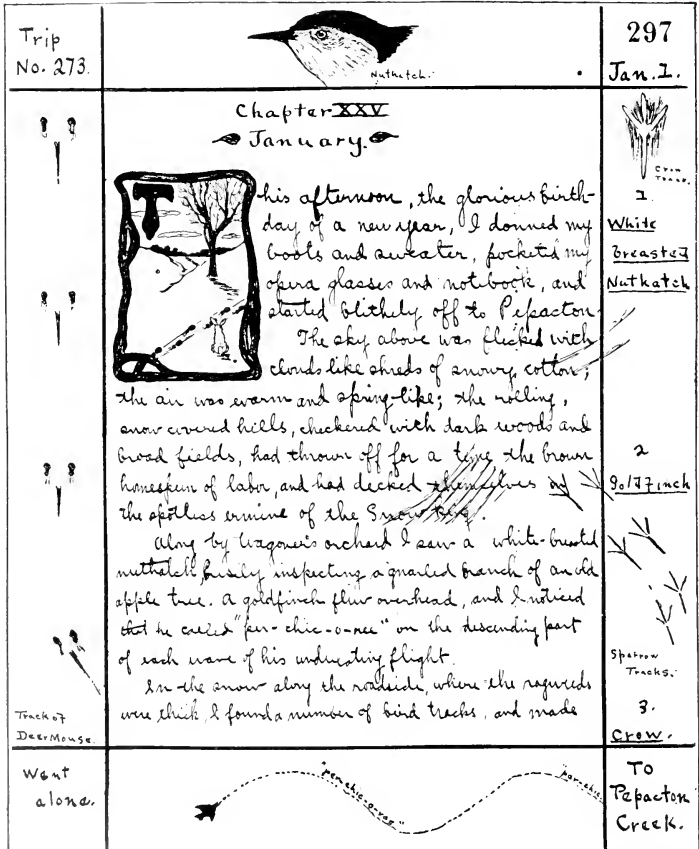 Trip
No. 273.
Nuthatch.
297
Jan. 1.
Chapter XXV
January.
This afternoon, the glorious birth-
day of a new year, I donned my
boots and sweater, pocketed my
opera glasses and notebook, and
started blithely off to Pepacton.
The sky above was flecked with
clouds like shreds of snowy cotton;
the air was warm and spring-like; the rolling,
snow covered hills, checkered with dark woods and
broad fields, had thrown off for a time the brown
homespun of labor, and had decked themselves in
the spotless ermine of the Snow
Along by Wagoner's orchard I saw a white-breasted
nuthatch busily inspecting a gnarled branch of an old
apple tree. A goldfinch flew overhead, and I noticed
that he called "per-chic-o-ree" on the descending part
of each wave of his undulating flight.
In the snow along the roadside, where the ragweeds
were thick, I found a number of bird tracks, and made
Crow
Track.
1
White
Breasted
Nuthatch
2
Goldfinch
Sparrow
Tracks.
3.
Crow.
Track of
Deer Mouse.
Went
alone.
"per-chic-o-ree"
"per-chic
To
Pepacton
Creek.